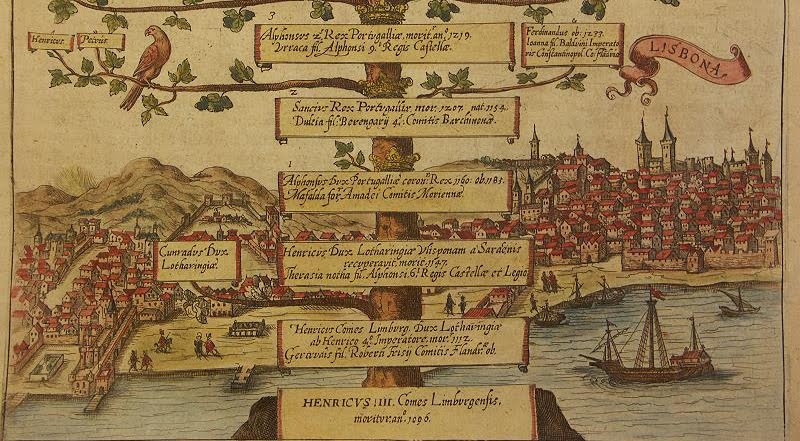 3
Alphonsus 2.^9 Rex Portugalliæ, morit. an.^o 1219.
Vrraca fil. Alphonsi 9.^i Regis Castellæ.
Ferdinandus ob. 1233.
Ioanna fil. Balduini Imperato
ris Constantinopol. Co. Flandriæ
Henricus.
Petrus.
LISBONA,
2
Sancius Rex Portugalliæ, mor. 1207. nat. 1154.
Dulcia fil. Berengarij 4.^i Comitis Barchinonæ.
1
Alphonsus Dux Portugalliæ coron.^r Rex 1160. ob. 1185.
Mafalda fo.^r Amadei Comitis Moriennæ.
Cunradus Dux
Lotharingiæ.
Henricus Dux Lotharingiæ Vlisponam a Sardenis
recuperavit, morit. 1147.
Therasia notha fil. Alphonsi. 6.^i Regis Castellæ et Legio.
Henricus Comes Limburg. Dux Lotharingiæ
ab Henrico 4.^o Imperatore, mor. 1112.
Roberti Frisij Comitis Flandr. ob.
HENRICVS IIII. Comes Limburgensis,
moritur an.^o 1096.